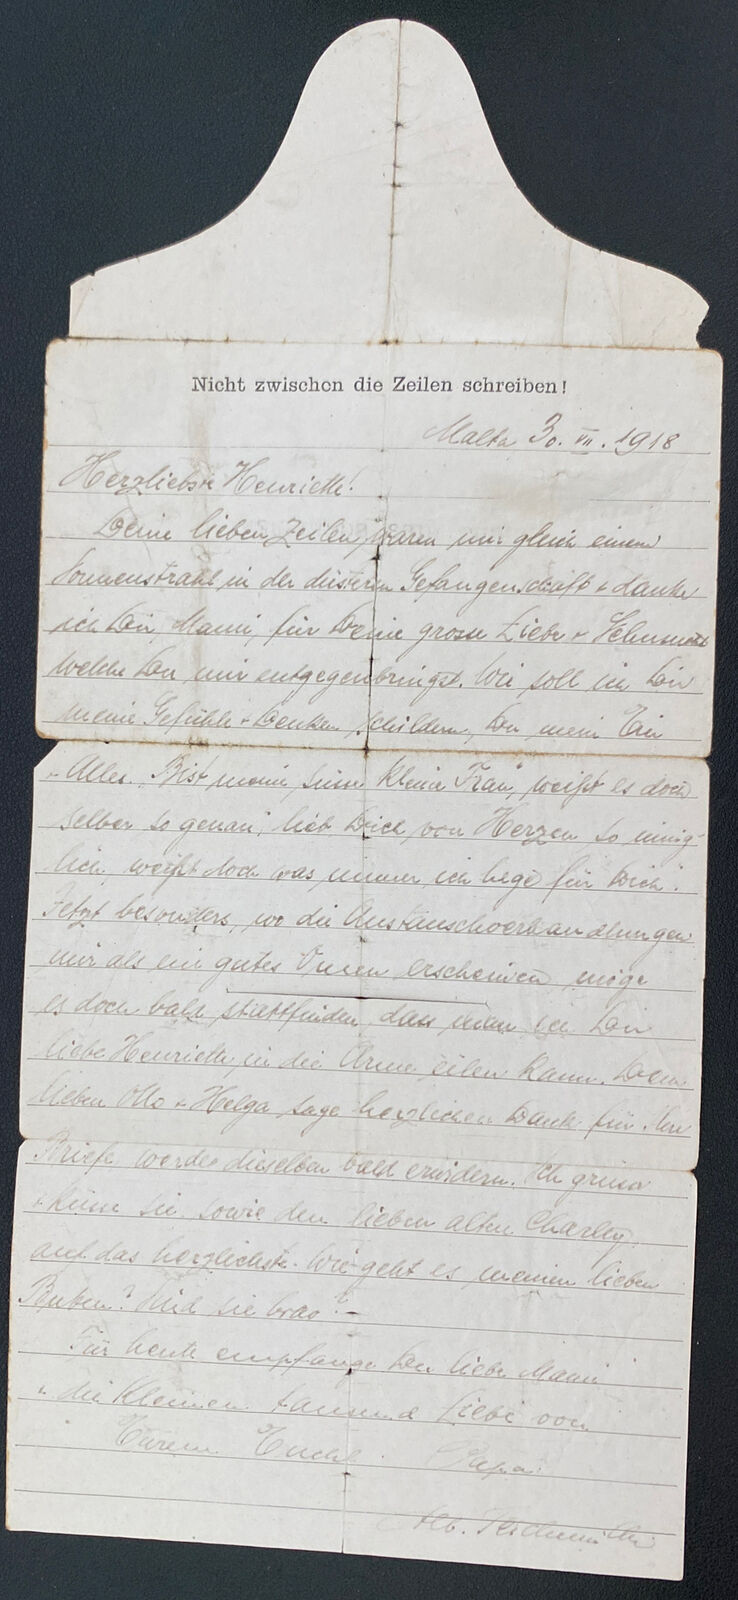 Nicht zwischen die Zeilen schreiben!
Malta 30. VII. 1918
Herzliebste Henriette!
Deine lieben Zeilen waren mir gleich einem
Sonnenstrahl in der düsteren Gefangenschaft + danke
ich Dir, Mami, für Deine grosse Liebe + Sehnsucht
welche Du mir entgegenbringst. Wie soll ich Dir
meine Gefühle + Denken schildern, Du mein Ein
+ Alles. „Bist meine süsse kleine Frau", weißt es doch
selber so genau, lieb Dich von Herzen so innig-
lich, weißt doch was immer ich hege für Dich".
Jetzt besonders, wo die Austauschverhandlungen
mir als ein gutes Omen erscheinen, möge
es doch bald stattfinden, dass man ich Dir
liebe Henriette, in die Arme eilen kann. Dem
lieben Otto + Helga sage herzlichen Dank für
Briefe, werde dieselben bald erwidern. Ich grüsse
+ küsse sie, sowie den lieben alten Charley
auf das herzlichste. Wie geht es meinen lieben
Buben? Sind sie brav? -
Für heute empfange Du liebe Mami
+ die Kleinen tausend Liebe von
Eurem Papa
Alb.